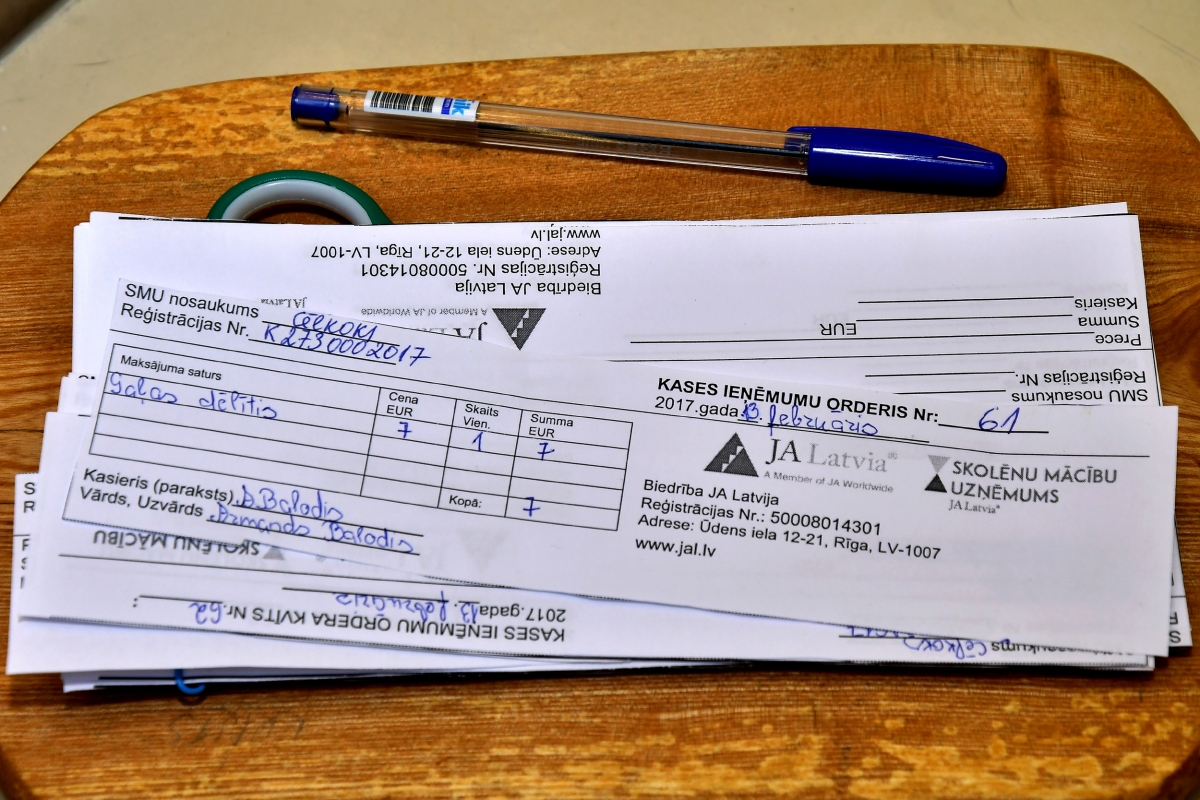 ik
www.jal.lv
Adrese: Ūdens iela 12-21, Rīga, LV-1007
Reģistrācijas Nr. 50008014301
Biedrība JA Latvija
A Member of JA Worldwide
Kasieris
Summa EUR
Prece
Reģistrācijas Nr.
SMU nosaukums
SMU nosaukums Cēlkoki
JA Latvia
Reģistrācijas Nr. K273000 2017
Maksājuma saturs
Cena EUR
Skaits Vien.
Summa EUR
Gaļas dēlītis 7 1 7
Kopā: 7
Kasieris (paraksts) A.Balodis
Vārds, Uzvārds Armands Balodis
KASES IEŅĒMUMU ORDERIS Nr: 61
2017.gada 13. februāris
JA Latvia
A Member of JA Worldwide
SKOLĒNU MĀCĪBU
UZŅĒMUMS
JA Latvia
Biedrība JA Latvija
Reģistrācijas Nr.: 50008014301
Adrese: Ūdens iela 12-21, Rīga, LV-1007
www.jal.lv
SKOLĒNU MĀCĪBU
2017.gada 13. februāris
KASES IEŅĒMUMU ORDERA KVĪTS Nr. 62
nosaukums Cēlkoki